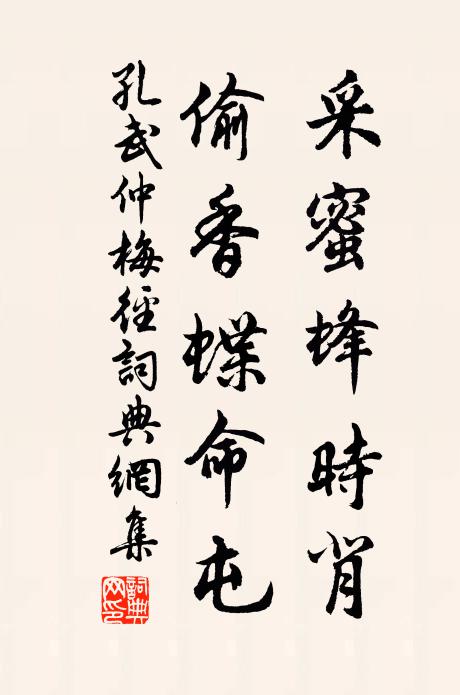 采蜜蜂時肯
偷香蝶命屯
孔武仲梅徑詞典網集
詞典网印